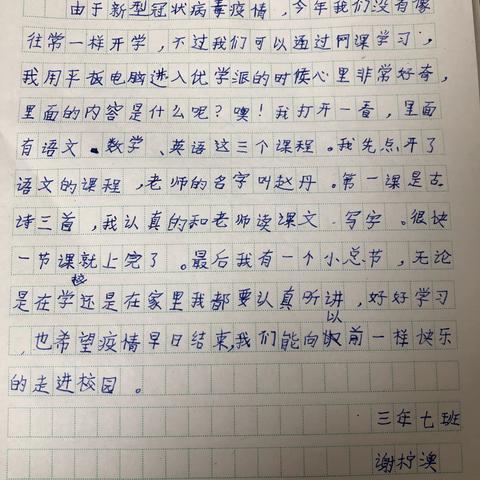 由于新型冠状病毒疫情，今年我们没有像
往常一样开学，不过我们可以通过网课学习，
我用平板电脑进入优学派的时候心里非常好奇，
里面的内容是什么呢？噢！我打开一看，里面
有语文、数学、英语这三个课程。我先点开了
语文的课程，老师的名字叫赵丹。第一课是古
诗三首，我认真的和老师读课文、写字。很快
一节课就上完了。最后我有一个小总节，无论
是在学校还是在家里我都要认真听讲，好好学习
，也希望疫情早日结束，我们能向以前一样快乐
的走进校园。
三年七班
谢柠澳